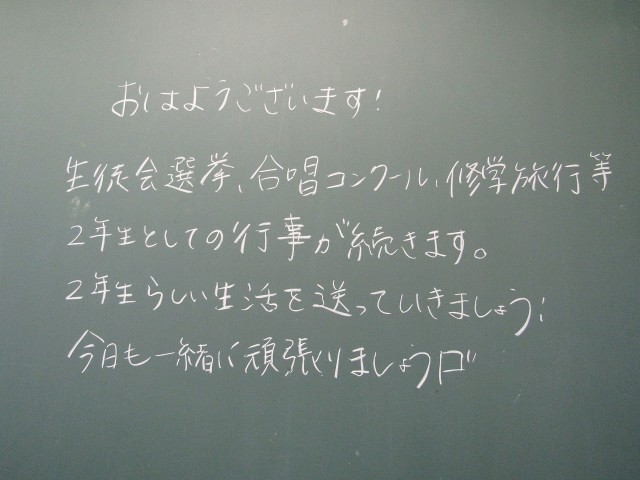 おはようございます!
生徒会選挙、合唱コンクール、修学旅行等
2年生としての行事が続きます。
2年生らしい生活を送っていきましょう!
今日も一緒に頑張りましょう